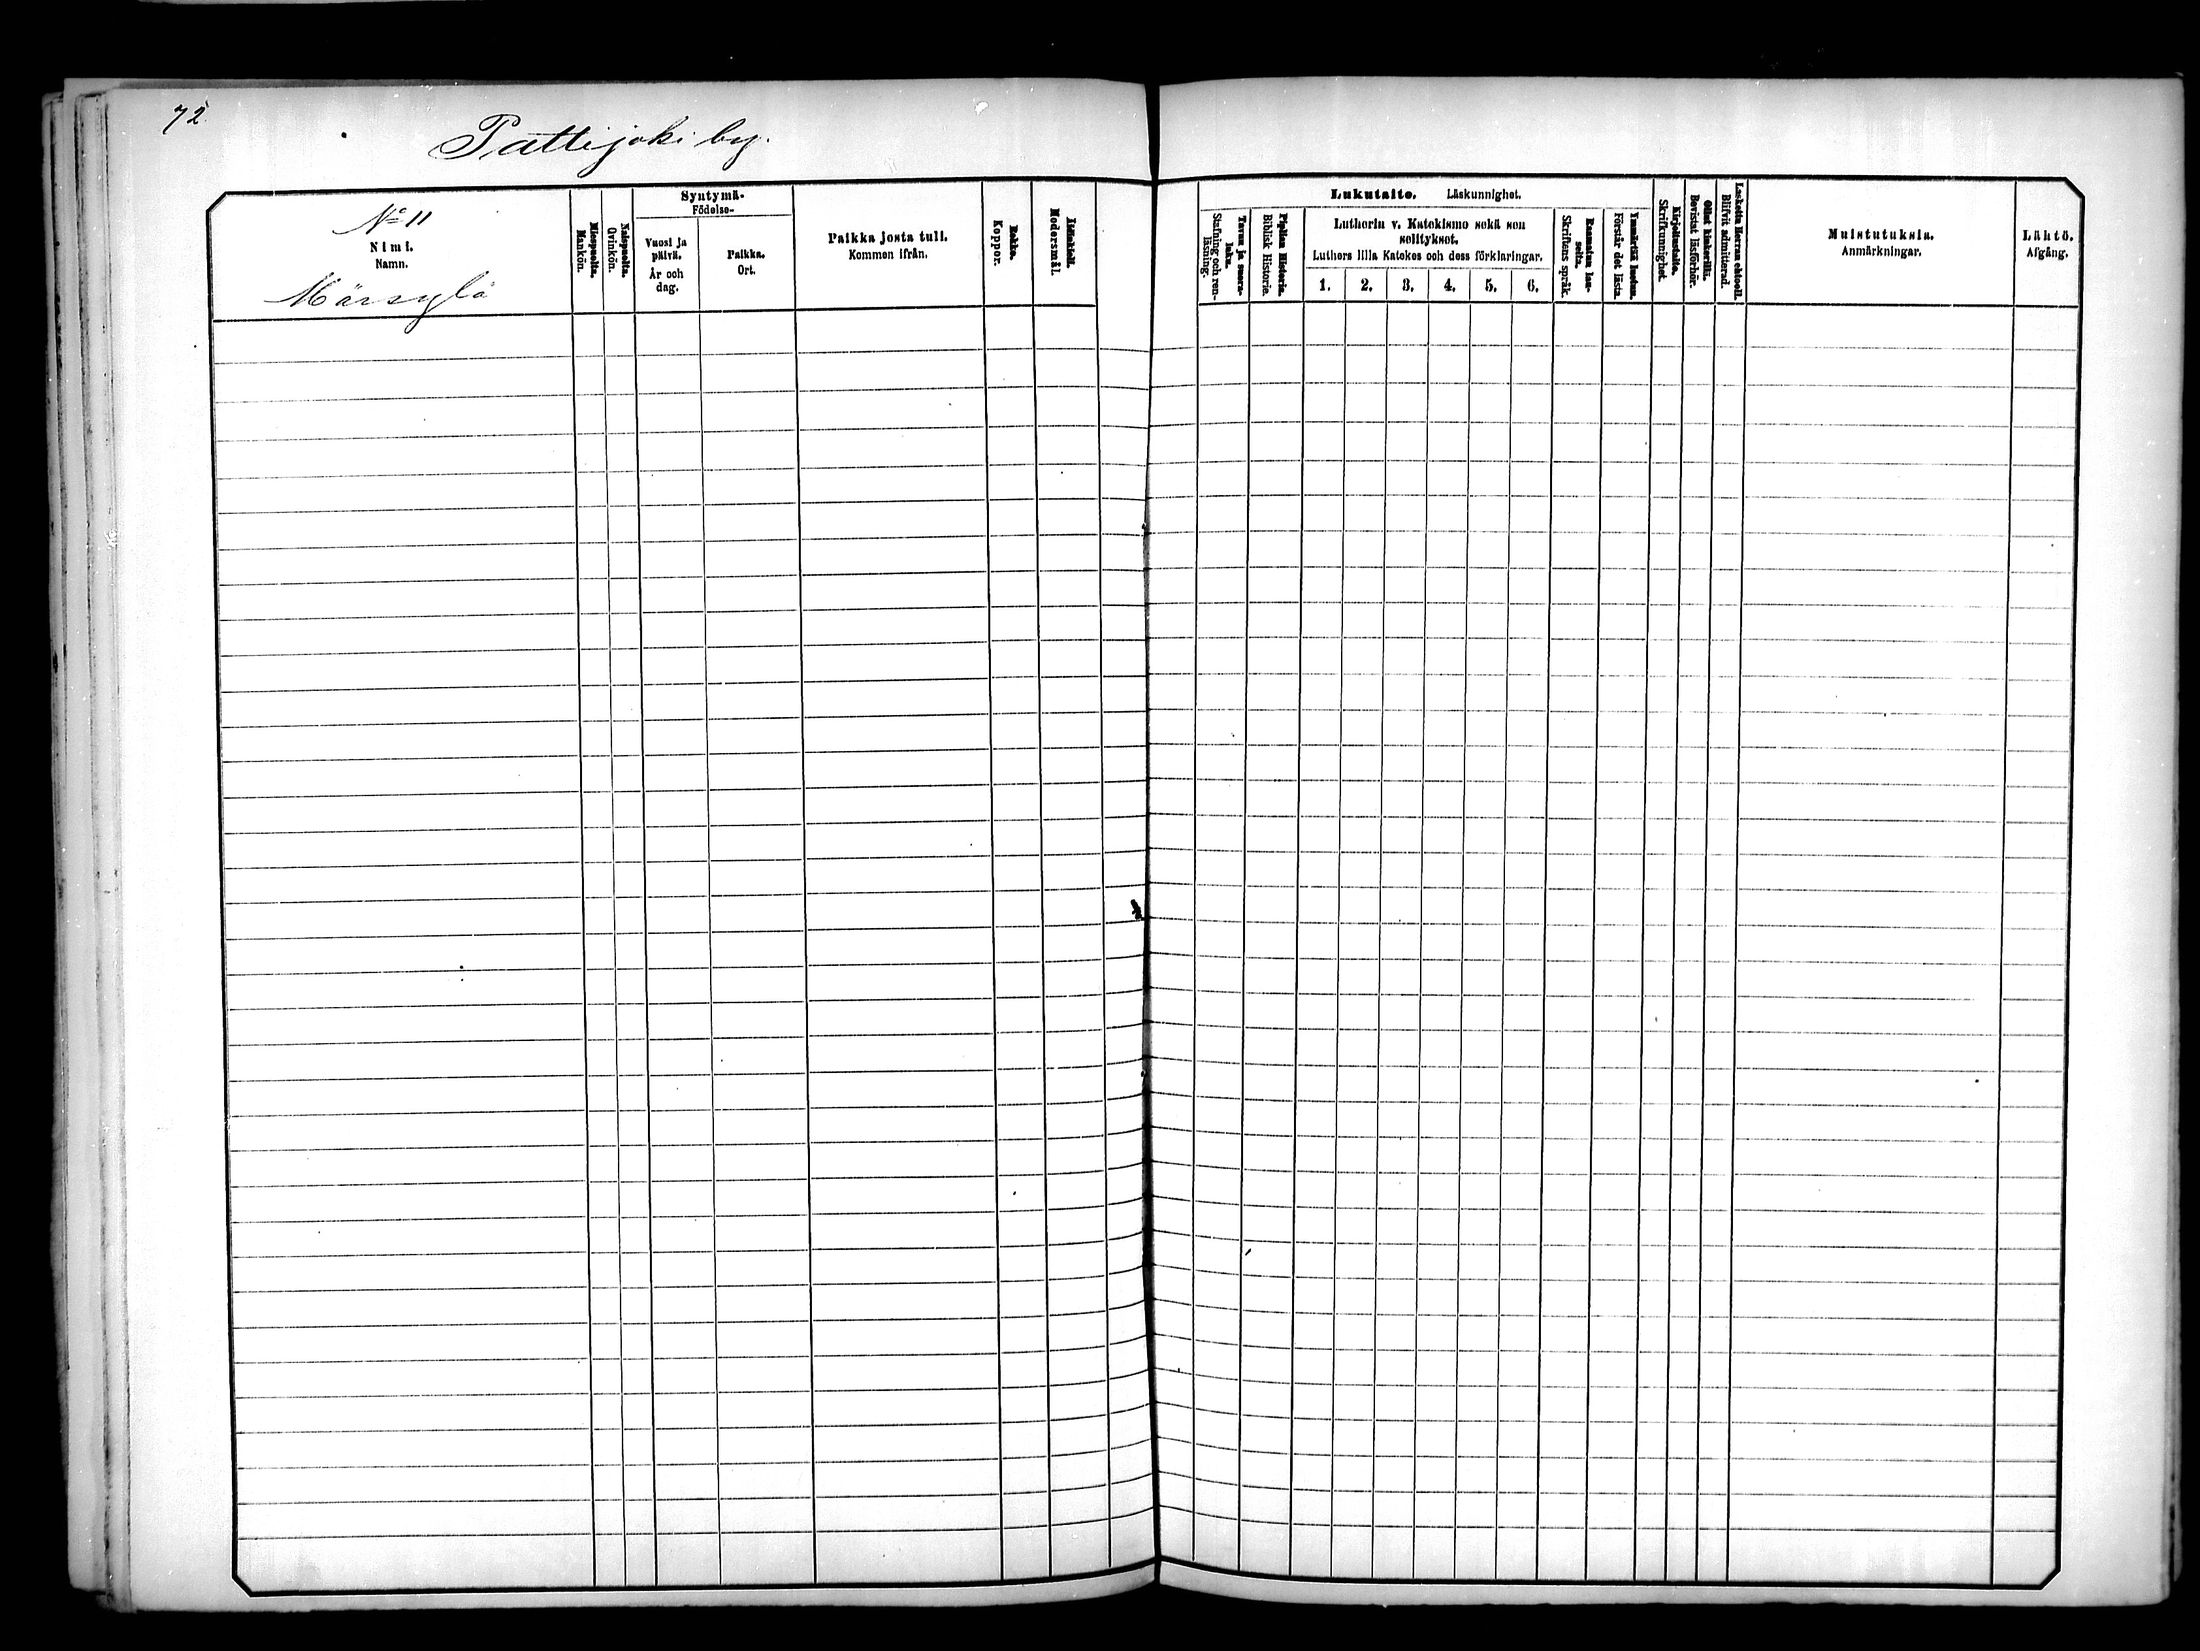 72
Pattijoki by.
No 11
Nimi.
Namn.
Märsylä
Miespuolta.
Mankön.
Naispuolta.
Qvinkön.
Syntymä-
Födelse-
Vuosi ja
päivä.
År och
dag.
Paikka.
Ort.
Paikka josta tuli.
Kommen ifrån.
Rokko.
Koppor.
Äidinkieli.
Modersmål.
Lukutaito. Läskunnighet.
Tavuu ja suora-
luku.
Stafning och ren-
läsning.
Piplian Historia.
Biblisk Historie.
Lutherin v. Katekismo sekä sen
selitykset.
Luthers lilla Katekes och dess förklaringar.
1. 2. 3. 4. 5. 6.
Raamatun lau-
seita.
Skriftens språk.
Ymmärtää luetun.
Förstår det lästa.
Kirjoitustaito.
Skrifkunnighet.
Ollut kinkerillä.
Bevistat läsförhör.
Laskettu Herran ehtool.
Blifvit admitterad.
Muistutuksia.
Anmärkningar.
Lähtö.
Afgång.